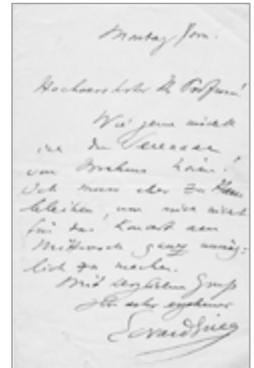 Montag Vorm.
Hochverehrter Hr Professor!
Wie gerne möchte
ich die Serenade
von Brahms hören!
Ich muss aber zu Hause
bleiben, um mich nicht
für das Konzert am
Mittwoch ganz unmög-
lich zu machen.
Mit herzlichem Gruss
Ihr sehr ergebener
Edvard Grieg